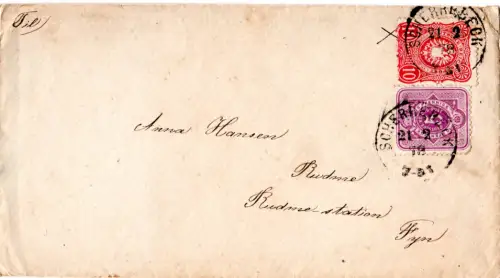 Til
SCHERREBECK
21 2
7-51
10
SCHERREBECK
21 2
78
7-51
Anna Hansen
Rudme
Rudme station
Fyn